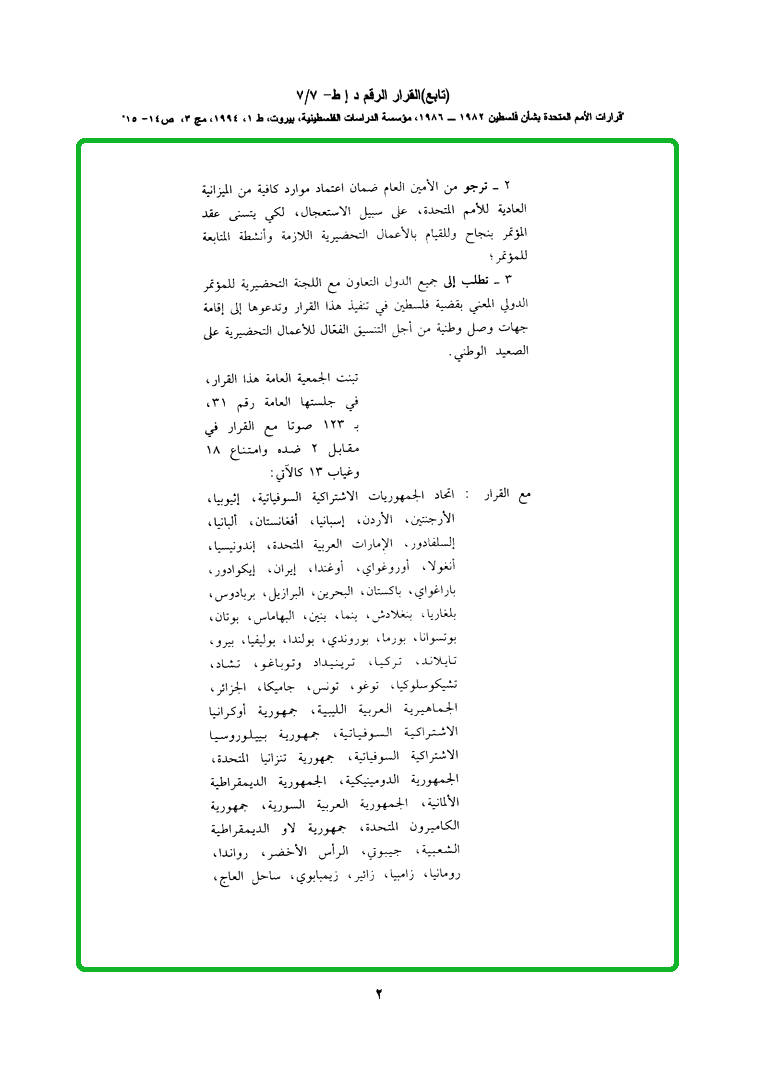 (تابع)القرار الرقم د إ ط- ٧/٧
"قرارات الأمم المتحدة بشأن فلسطين ١٩٨٢ ــ ١٩٨٦، مؤسسة الدراسات الفلسطينية، بيروت، ط ١، ١٩٩٤، مج ٣، ص١٤- ١٥"
٢ ـ ترجو من الأمين العام ضمان اعتماد موارد كافية من الميزانية
العادية للأمم المتحدة، على سبيل الاستعجال، لكي يتسنى عقد
المؤتمر بنجاح وللقيام بالأعمال التحضيرية اللازمة وأنشطة المتابعة
للمؤتمر؛
٣ ـ تطلب إلى جميع الدول التعاون مع اللجنة التحضيرية للمؤتمر
الدولي المعني بقضية فلسطين في تنفيذ هذا القرار وتدعوها إلى إقامة
جهات وصل وطنية من أجل التنسيق الفعّال للأعمال التحضيرية على
الصعيد الوطني.
تبنت الجمعية العامة هذا القرار،
في جلستها العامة رقم ٣١،
بـ ١٢٣ صوتا مع القرار في
مقابل ٢ ضده وامتناع ١٨
وغياب ١٣ كالآتي:
مع القرار : اتحاد الجمهوريات الاشتراكية السوفياتية، إثيوبيا،
الأرجنتين، الأردن، إسبانيا، أفغانستان، ألبانيا،
إلسلفادور، الإمارات العربية المتحدة، إندونيسيا،
أنغولا، أوروغواي، أوغندا، إيران، إيكوادور،
باراغواي، باكستان، البحرين، البرازيل، بربادوس،
بلغاريا، بنغلادش، بنما، بنين، البهاماس، بوتان،
بوتسوانا، بورما، بوروندي، بولندا، بوليفيا، بيرو،
تايلاند، تركيا، ترينيداد وتوباغو، تشاد،
تشيكوسلوكيا، توغو، تونس، جاميكا، الجزائر،
الجماهيرية العربية الليبية، جمهورية أوكرانيا
الاشتراكية السوفياتية، جمهورية بييلوروسيا
الاشتراكية السوفياتية، جمهورية تنزانيا المتحدة،
الجمهورية الدومينيكية، الجمهورية الديمقراطية
الألمانية، الجمهورية العربية السورية، جمهورية
الكاميرون المتحدة، جمهورية لاو الديمقراطية
الشعبية، جيبوتي، الرأس الأخضر، رواندا،
رومانيا، زامبيا، زائير، زيمبابوي، ساحل العاج،
٢